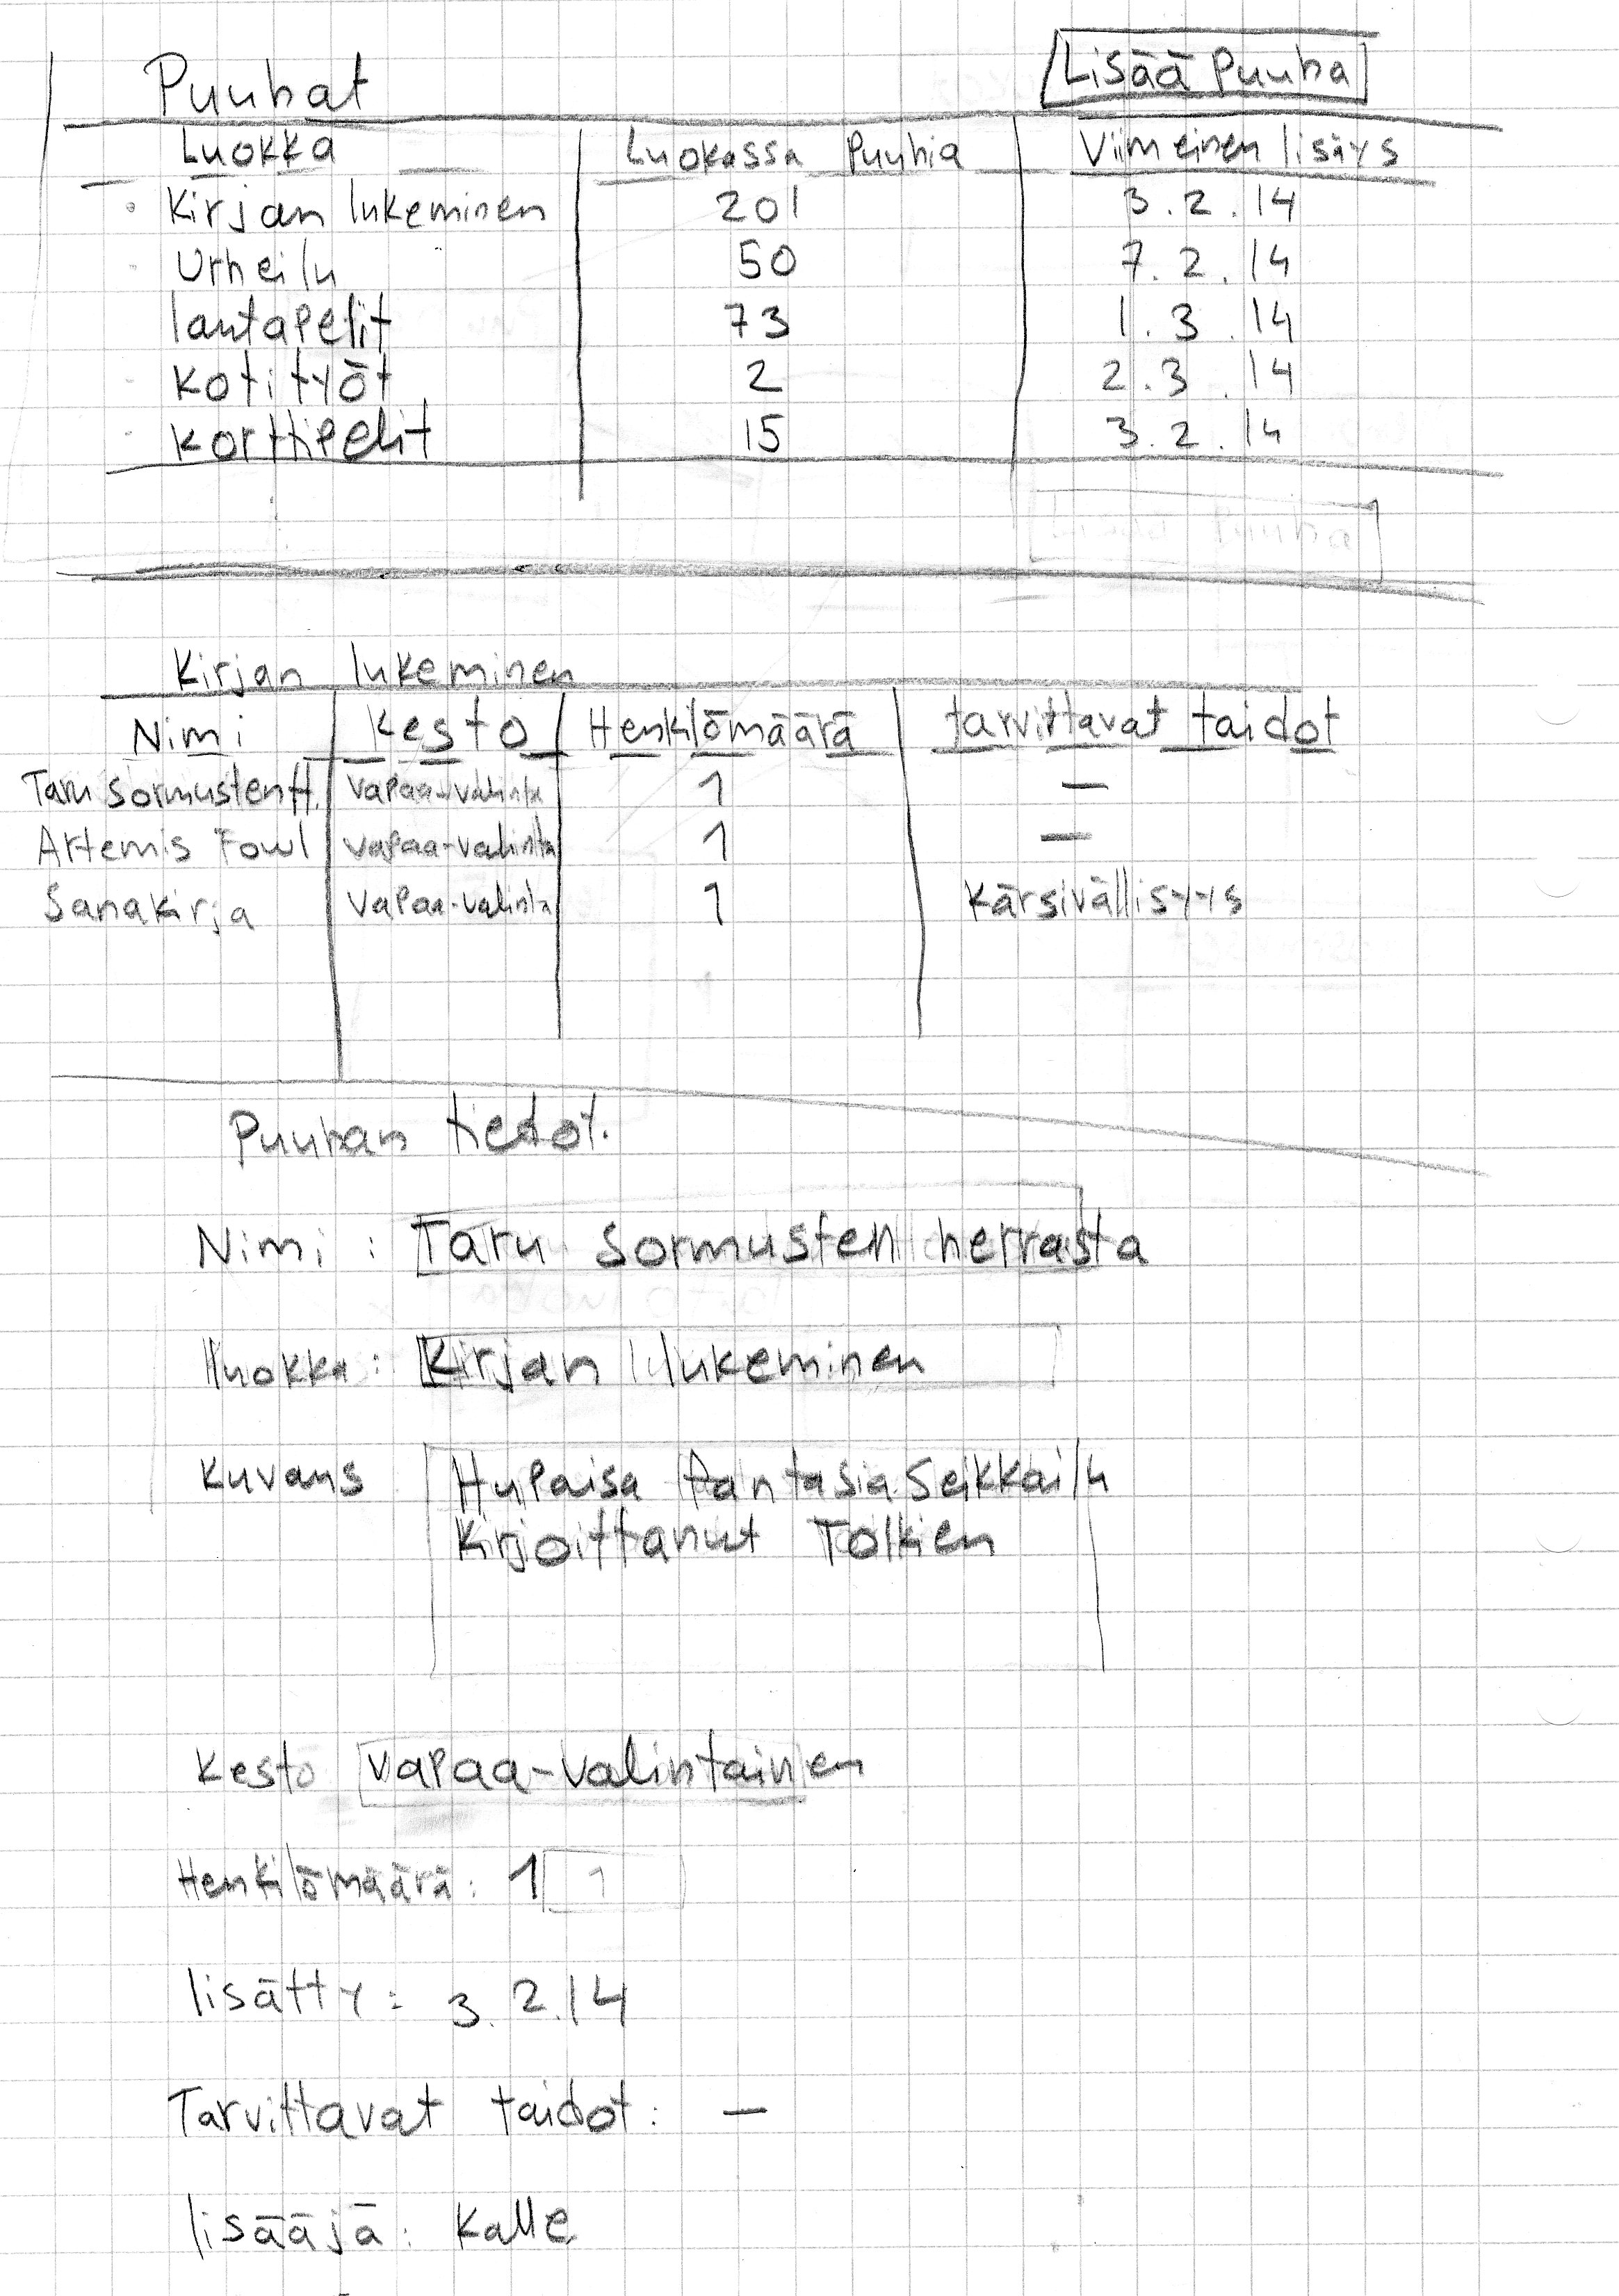 Puuhat Lisää Puuha
Luokka Luokassa Puuhia Viimeinen lisäys
Kirjan lukeminen 201 3.2.14
Urheilu 50 7.2.14
lautapelit 73 1.3.14
Kotityöt 2 2.3.14
Korttipelit 15 3.2.14
Kirjan lukeminen
Nimi Kesto Henkilömäärä tarvittavat taidot
Taru sormusten H. Vapaa-valinta 1 —
Artemis Fowl Vapaa-valinta 1 —
Sanakirja Vapaa-valinta 1 Kärsivällisyys
Puuhan tiedot.
Nimi : Taru Sormusten herrasta
luokka : Kirjan lukeminen
Kuvaus Hupaisa fantasia seikkailu
Kirjoittanut Tolkien
Kesto Vapaa-valintainen
Henkilömäärä : 1 1
lisätty : 3.2.14
Tarvittavat taidot : —
lisääjä : Kalle